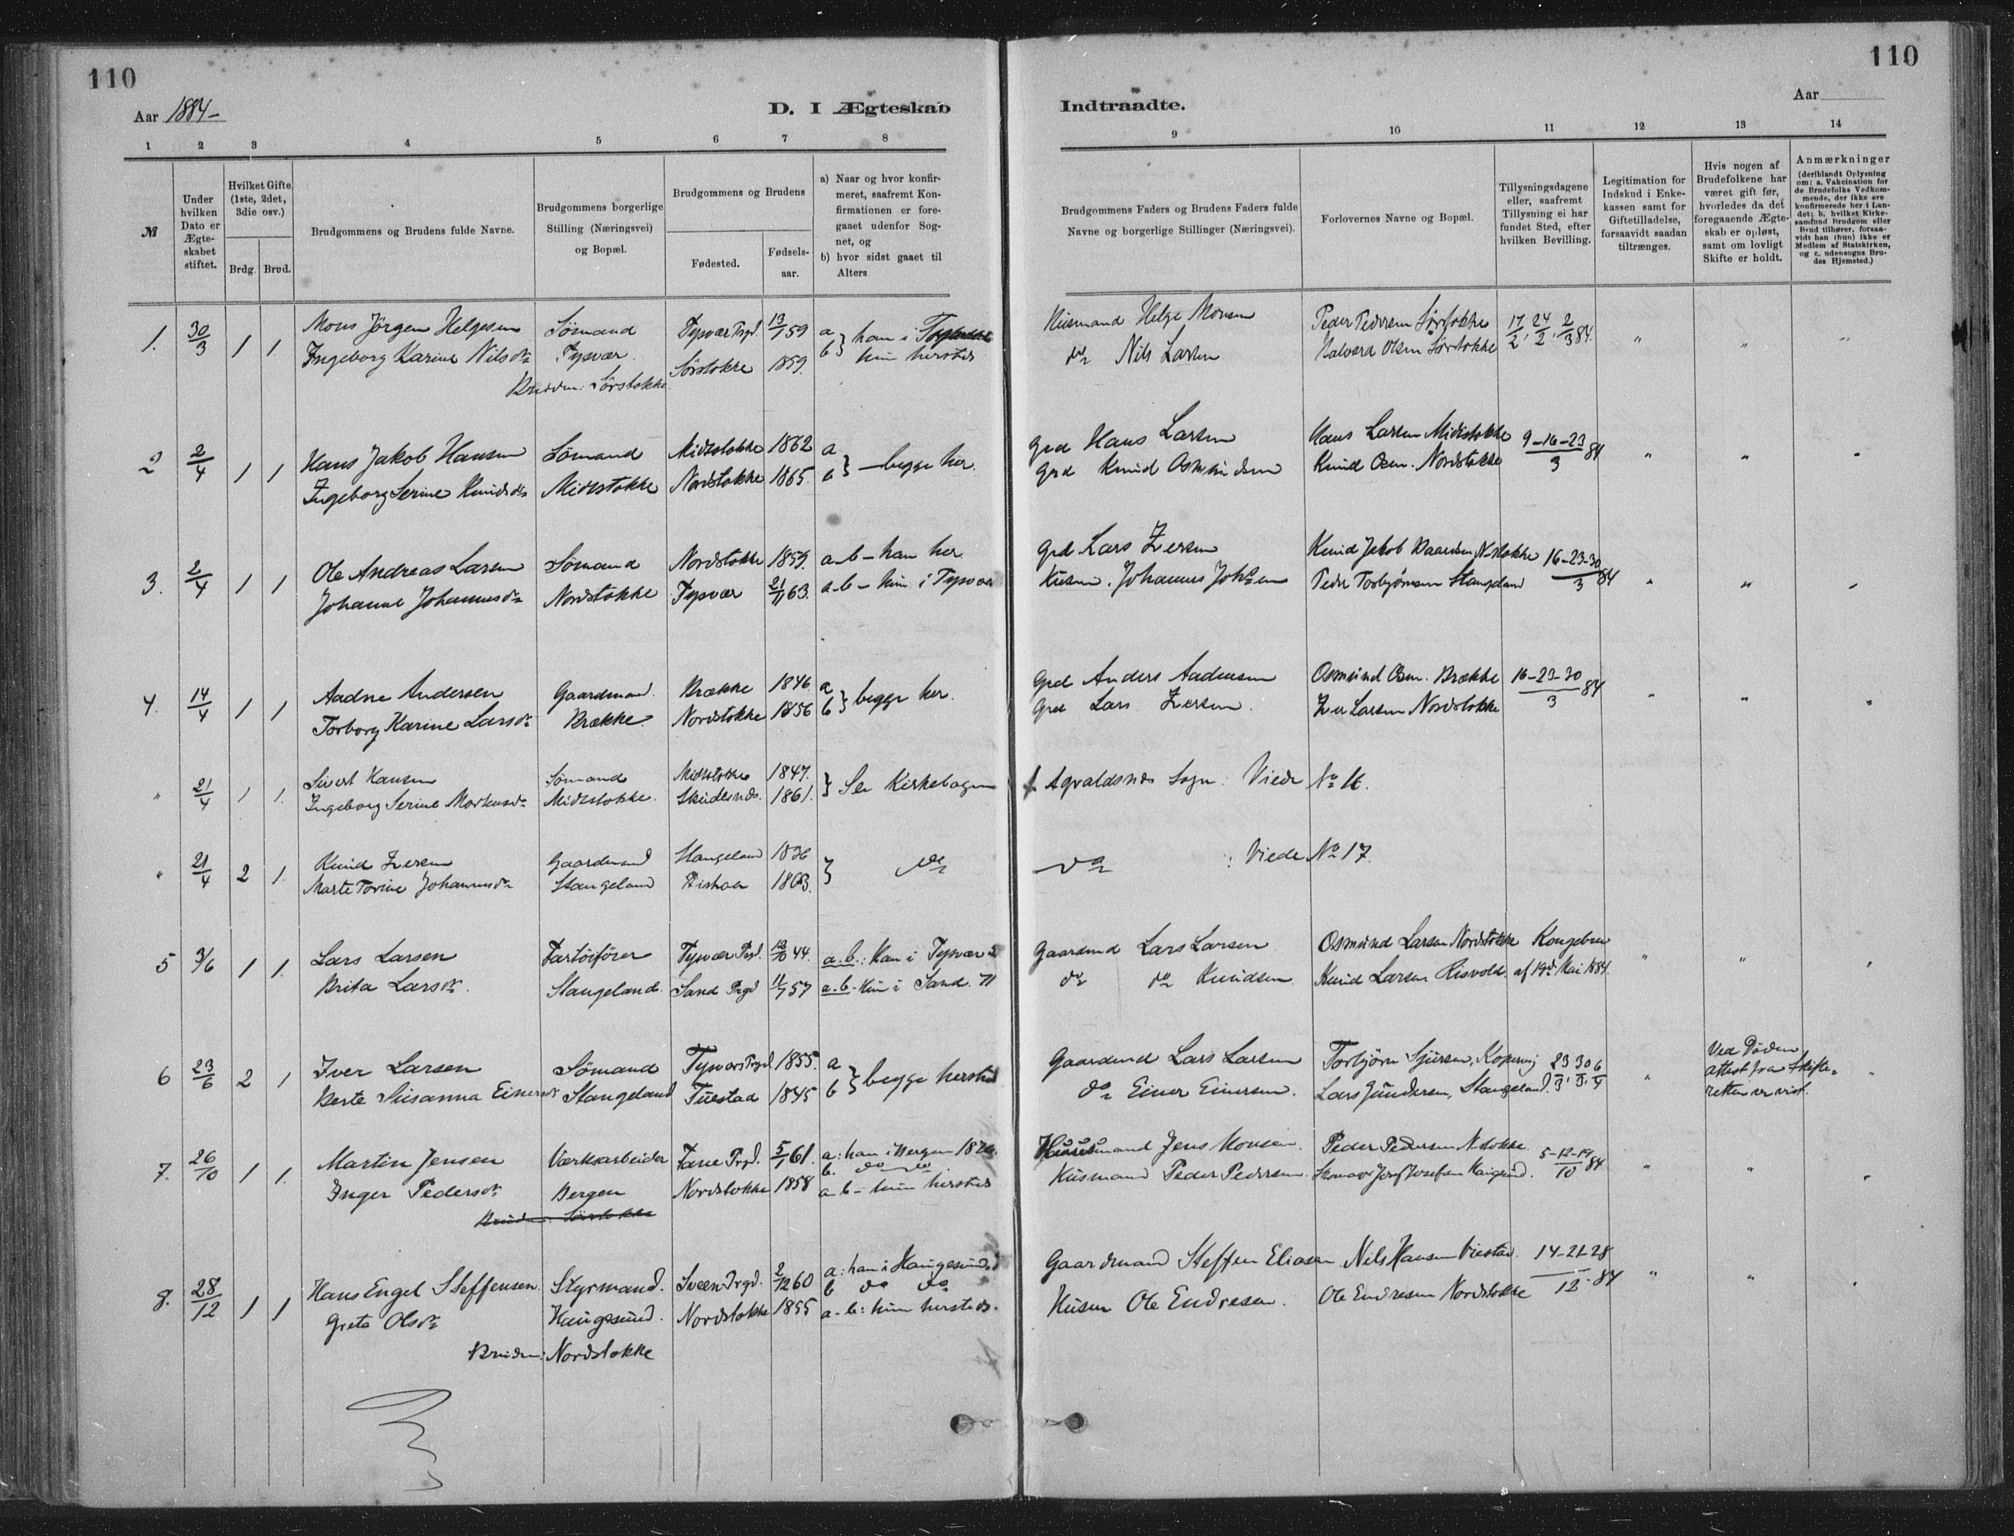 110
110
Aar 1884-
D. I Ægteskab Indtraadte.
Aar
1 2 3 4 5 6 7 8 9 10 11 12 13 14
№
Under hvilken Dato er Ægteskabet stiftet.
Hvilket Gifte (1ste, 2det, 3die osv.)
Brdg. Brud.
Brudgommens og Brudens fulde Navne.
Brudgommens borgerlige Stilling (Næringsvei) og Bopæl.
Brudgommens og Brudens
Fødested. Fødselsaar.
a) Naar og hvor konfirmeret, saafremt Konfirmationen er foregaaet udenfor Sognet, og
b) hvor sidst gaaet til Alters
Brudgommens Faders og Brudens Faders fulde Navne og borgerlige Stillinger (Næringsvei).
Forlovernes Navne og Bopæl.
Tillysningsdagene eller, saafremt Tillysning ei har fundet Sted, efter hvilken Bevilling.
Legitimation for Indskud i Enkekassen samt for Giftetilladelse, forsaavidt saadan tiltrænges.
Hvis nogen af Brudefolkene har været gift før, hvorledes da det foregaaende Ægteskab er opløst, samt om lovligt Skifte er holdt.
Anmærkninger (deriblandt Oplysning om: a. Vakcination for de Brudefolks Vedkommende, der ikke ere konfirmerede her i Landet; b. hvilket Kirkesamfund Brudgom eller Brud tilhører, forsaavidt han (hun) ikke er Medlem af Statskirken, og c. udensogns Brudes Hjemsted.)
1. 30/3 1 1. Mons Jörgen Helgesen Sömand Tysvær Prgd. 13/7 59 a} han i Husmand Helge Monsen Peder Pedersen Sörstokke 17/2, 24/2, 2/3 84. " " "
Ingeborg Karine Nilsdr Tysvær. Sörstokke 1859. b} hun hersteds do Nils Larsen Halvard Olsen Sörstokke
Sörstokke
2 2/4 1 1 Hans Jakob Hansen Sömand Midtstokke 1862 a Grd Hans Larsen Hans Larsen Midtstokke 9-16-23/3 84 " " "
Ingeborg Serine Knudsdr Midtstokke Nordstokke 1865. b} begge her. Grd Knud Osmundsen Knud Osm. Nordstokke
3. 2/4 1 1 Ole Andreas Larsen Sömand Nordstokke 1859. a-b- han her. Grd Lars Iversen Knud Jakob Baardsen, N.stokke 16-23-30/3 84 " " "
Johanne Johannesdr Nordstokke Tysvær 21/11 63. a-b- hun i Tysvær Husm. Johannes Johsen Peder Torbjørnsen Stangeland
4. 14/4 1 1 Aadne Andersen Gaardmand. Brække 1846 a Grd Anders Aadnesen Osmund Osm. Brække 16-23-30/3 84 " " "
Torborg Karine Larsdr Brække Nordstokke 1856 b} begge her. Grd Lars Iversen. Iver Larsen Nordstokke
" 21/4 1 1. Sivert Hansen Sömand Midtstokke 1847. } Se Kirkebogen f. Agvaldsnes Sogn: Viede No 16.
Ingeborg Serine Markusdr Midtstokke. Skudesnæs. 1861.
" 21/4 2 1. Knud Iversen Gaardmand Stangeland 1836 } do do : Viede No 17.
Marte Torine Johannesdr Stangeland 1863.
5 3/6 1 1. Lars Larsen Fartöiförer Tysvær Prgd. 13/10 44. a-b: han i Tysvær Gaardmd Lars Larsen Osmund Larsen Nordstokke Kongebrev " " "
Brita Larsdr. Stangeland. Sand Prgd 11/7 57 a-b- hun i Sand do do Knudsen Knud Larsen Risvold. af 19d Mai 1884.
6 23/6 2 1 Iver Larsen Sömand Tysvær Prgd. 1855. a Gaardmd Lars Larsen Torbjörn Sjursen, Kopervig 23/3, 30/3, 6/4 " Ved Döden. Attest fra Skifteretten er vist. "
Berte Susanna Einersdr Stangeland Tuestad 1845 b} begge hersteds do Einer Einersen. Lars Gundersen, Stangeland.
7. 26/10 1 1. Martin Jensen Værksarbeider Fane Prgd. 5/1 61. a: han i Bergen Husmand Jens Monsen. Peder Pedersen N.stokke 5-12-19/10 84 " " "
b. do do
Inger Pedersdr Bergen Nordstokke 1858 a-b- hun hersteds Husmand Peder Pedersen
8. 28/12 1 1 Hans Engel Steffensen. Styrmand. Sveen Prgd. 2/12 60 a: han i Haugesund Gaardmand Steffen Eliasen Nils Hansen Viestad. 14-21-28/12 84 " " "
b do do
Grete Olsdr Haugesund. Nordstokke 1855 a-b: hun hersteds. Husm Ole Endresen. Ole Endresen Nordstokke
Bruden: Nordstokke